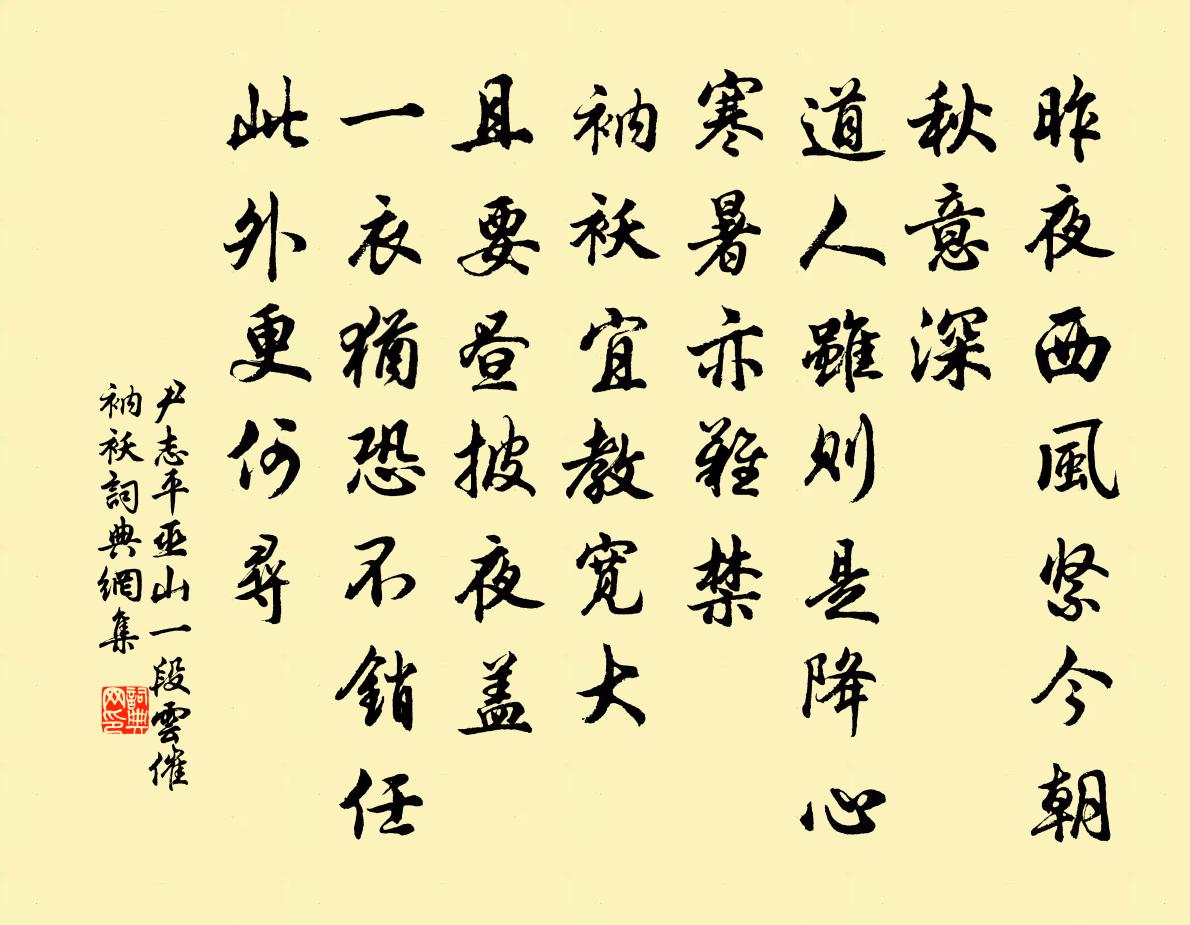 昨夜西風紧今朝
秋意深
道人雖则是降心
寒暑亦難禁
衲袄宜教宽大
且要昼披夜盖
一衣猶恐不銷任
此外更何尋
尹志平巫山一段雲催
衲袄詞典網集
詞典网印